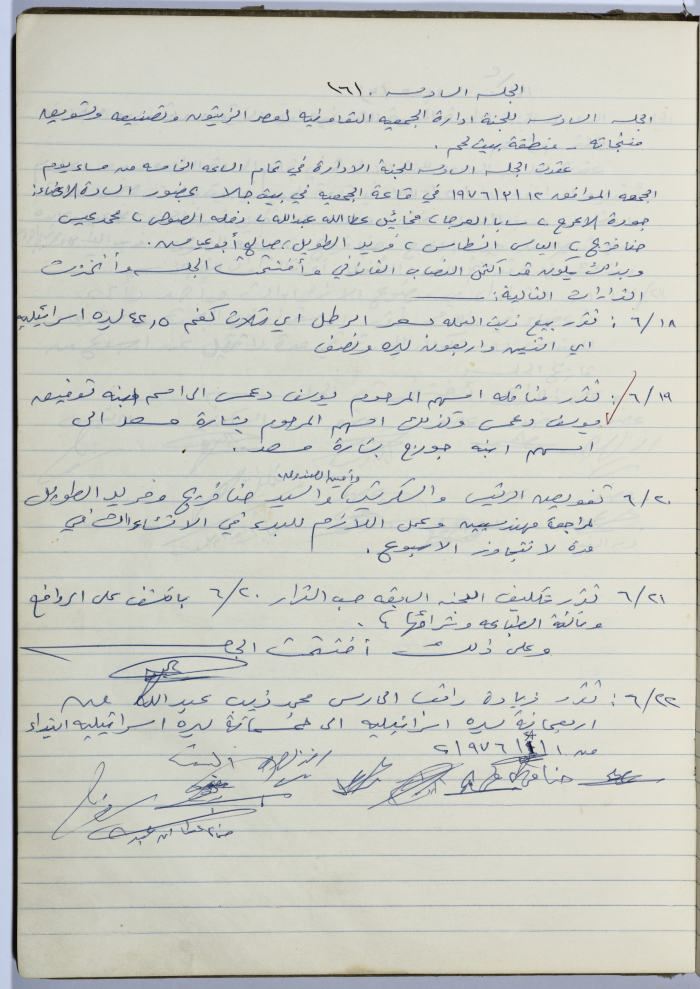 الجلسه السادسه . (٦)
الجلسه السادسه للجنة ادارة الجمعيه التعاونيه لعصر الزيتون وتصنيعه وتسويق
منتجاته - منطقة بيت لحم .
عقدت الجلسه السادسه للجنة الادارة في تمام الساعه الخامسه من مساء يوم
الجمعه الموافق ١٢ /٣/ ١٩٧٦ في قاعة الجمعيه في بيت جالا بحضور السادة الاعضاء :
جودة الاعرج ، سابا العرجا ، مخائيل عطاالله عبدالله ، نخله الصوص ، محمد عيسى
حنا فريج ، الياس الطاس ، فريد الطويل ، صالح أبو عياش .
وبذلك يكون قد اكتمل النصاب القانوني وأفتتحت الجلسه وأتخذت
القرارات التالية :
٦/١٨ : تقرر بيع زيت العمله بسعر الرطل اي ثلاث كغم ٤٢,٥ ليره اسرائيليه
اي اثنين واربعون ليره ونصف
٦/١٩ : تقرر مناقله اسهم المرحوم يوسف دعمس الى اسم ابنه توفيق
يوسف دعمس وكذلك اسهم المرحوم بشارة مسعد الى
اسهم ابنه جورج بشارة مسعد .
وأمين الصندوق
٦/٢٠ تفويض الرئيس والسكرتير والسيد حنا فريج وفريد الطويل
لمراجعة مهندسيين وعمل اللازم للبدء في الانشاءات في
مدة لا تتجاوز الاسبوع .
٦/٢١ تقرر تكليف اللجنه السابقه حسب القرار ٦/٢٠ بالكشف على الروافع
وماكنة الطباعه وشرائها .
وعلى ذلك أختتمت
٦/٢٢ : تقرر زيادة راتب الحارس محمد ذيب عبدالله من
اربعمائة ليره اسرائيليه الى خمسمائة ليره اسرائيليه ابتداء
من ١٩٧٦
حنا فريج